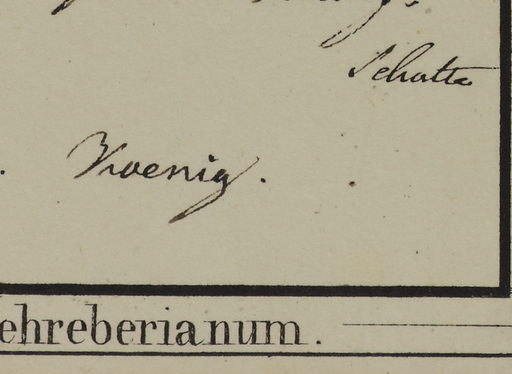 Schott
Koenig.
ehreberianum.